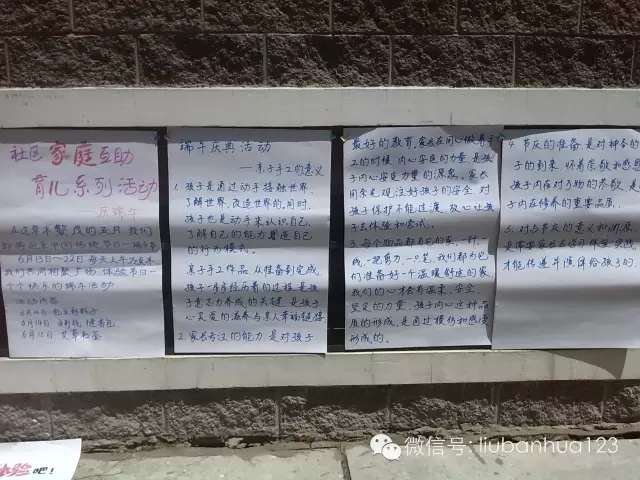 社区家庭互助
育儿系列活动
庆端午
在这草木繁茂的五月我们
即将迎来中国传统节日—端午节
6月13日—22日每天上午
我们共同相聚广场体验节日
个个快乐的端午活动
活动内容
6月14日
6月19日
端午庆典活动
——亲子手工的意义
1. 孩子是通过动手接触世界,
了解世界,改造世界的。同时,
孩子也是动手来认识自己,
了解自己的能力塑造自己
的行为模式。
亲子手工作品,从准备到完成,
孩子一步步经历着的过程是孩
子意志力养成的关键,是孩子
心灵受的滋养与亲人幸福链接
2. 家长专注的能力,是对孩子
最好的教育,家长在用心做着手
工的时候,内心安定的力量是孩
子内心安定力量的源泉。家长
用余光观注好孩子的安全,对
孩子保护不能过渡,放心让孩
子去体验和尝试。
3. 每个物品都有它的家,一针、
一线、一把剪刀、一只笔,我们都为它
们准备好一个温暖舒适的家,
我们的心才会有温柔,安全,
坚定的力量。孩子内心这种品
质的形成,是通过模仿和感受
形成的。
4. 节庆的准备,是对神圣的
子的到来,怀着崇敬和感恩
孩子内在对万物的恭敬,是
子内在修养的重要品质。
5. 对与节庆的意义和
才能传递并演伴给孩子的。
体验吧!
微信号: liubanhua123